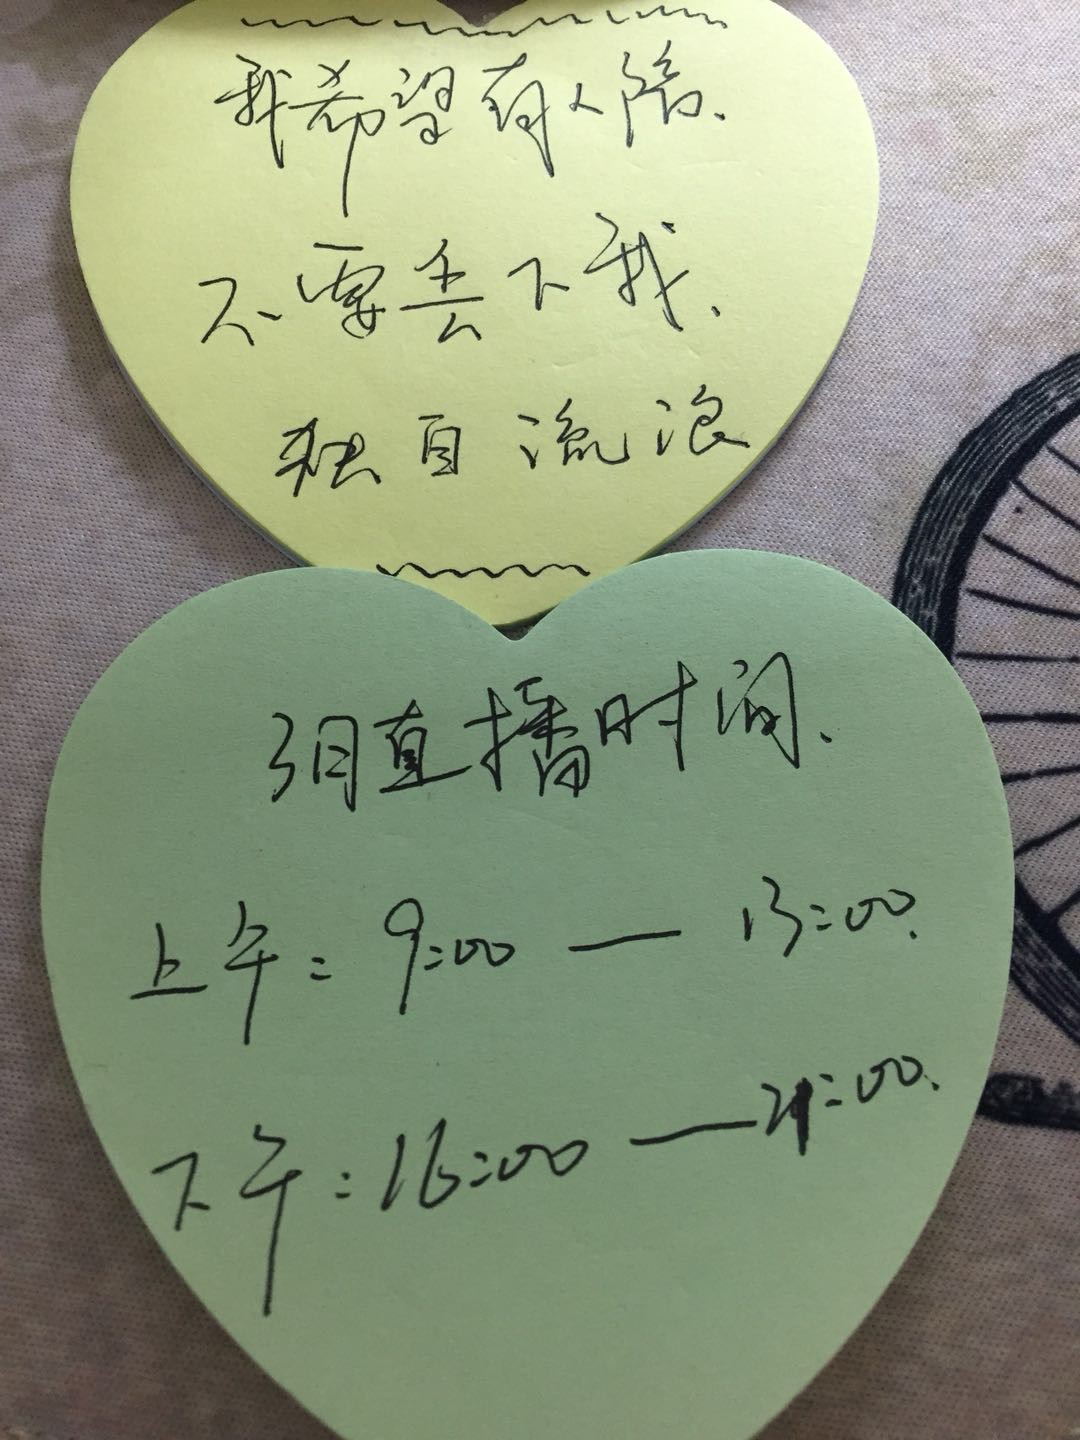 我希望有人陪.
不要丢下我.
独自流浪
3月直播时间.
上午:9:00 — 13:00.
下午:16:00 — 21:00.